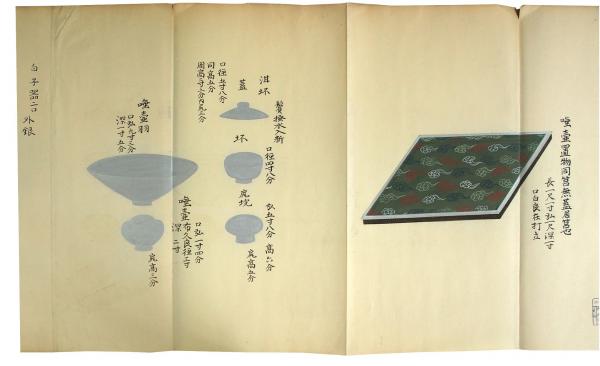 唾壺置物同筥無蓋居筥也
長一尺一寸弘一尺深一寸
口白良在打立
泔坏
鬢搔水入新
蓋
口径五寸八分
同高五分
坏
口径四寸八分
尻坑
弘五寸八分 高六分
尻高五分
唾壺羽
口弘九寸三分
深一寸五分
唾壺
口弘一寸四分
布久良径二寸
深二寸
尻高三分
白子器二口外銀